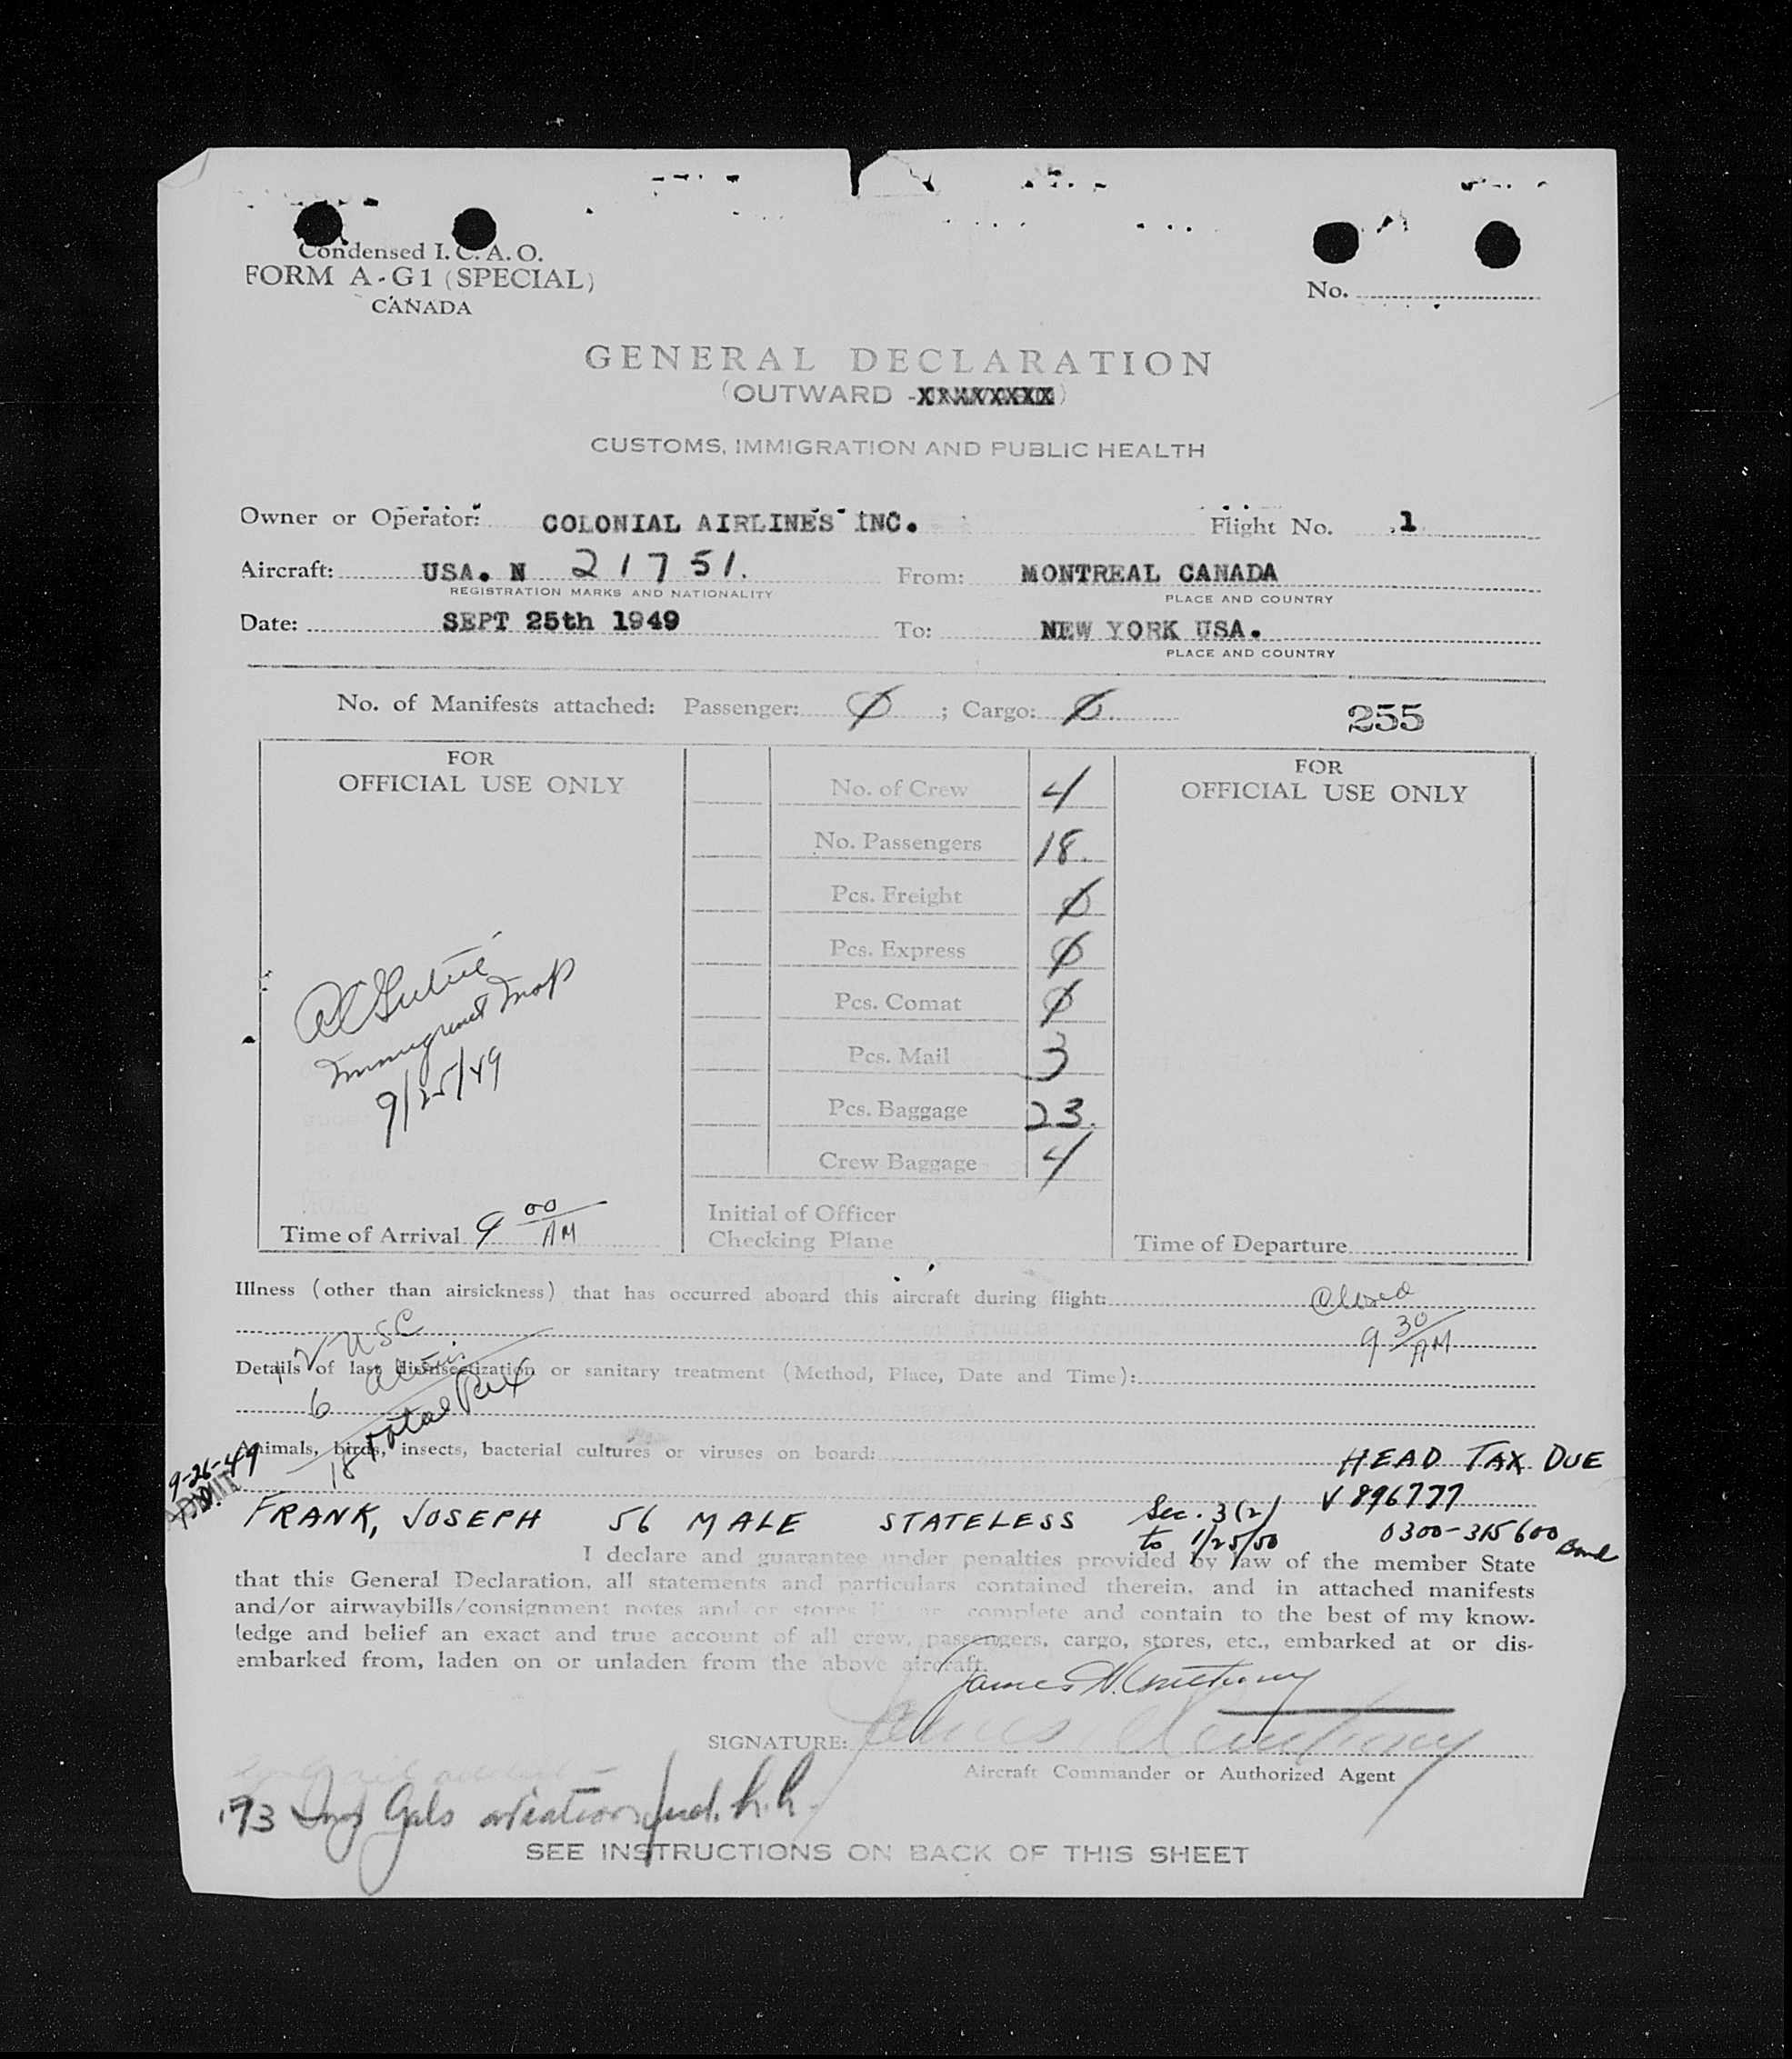 Condensed I.C.A.O.
FORM A-G1 (SPECIAL)
CANADA
No.
GENERAL DECLARATION
(OUTWARD -XXXXXXXX)
CUSTOMS, IMMIGRATION AND PUBLIC HEALTH
Owner or Operator: COLONIAL AIRLINES INC. Flight No. 1
Aircraft: USA. N 21751. From: MONTREAL CANADA
REGISTRATION MARKS AND NATIONALITY PLACE AND COUNTRY
Date: SEPT 25th 1949 To: NEW YORK USA.
PLACE AND COUNTRY
No. of Manifests attached: Passenger: Ø ; Cargo: Ø.
255
FOR
OFFICIAL USE ONLY
9/25/49
Time of Arrival 9 00 AM
No. of Crew 4
No. Passengers 18.
Pcs. Freight Ø
Pcs. Express Ø
Pcs. Comat Ø
Pcs. Mail 3
Pcs. Baggage 23.
Crew Baggage 4
Initial of Officer
Checking Plane
FOR
OFFICIAL USE ONLY
Time of Departure
Illness (other than airsickness) that has occurred aboard this aircraft during flight:
Closed
9 30 AM
12 USC
Details of last disinsectization or sanitary treatment (Method, Place, Date and Time):
6 aliens
18 Total
Animals, birds, insects, bacterial cultures or viruses on board:
HEAD TAX DUE
9-26-49
ADMIT
V 896777
FRANK, JOSEPH 56 MALE STATELESS Sec. 3(2)
to 1/25/50
0300-315600 Bond
I declare and guarantee under penalties provided by law of the member State
that this General Declaration, all statements and particulars contained therein, and in attached manifests
and/or airwaybills/consignment notes and or stores complete and contain to the best of my know-
ledge and belief an exact and true account of all crew, passengers, cargo, stores, etc., embarked at or dis-
embarked from, laden on or unladen from the above aircraft.
SIGNATURE: James
Aircraft Commander or Authorized Agent
173 Gals aviation fuel.
SEE INSTRUCTIONS ON BACK OF THIS SHEET